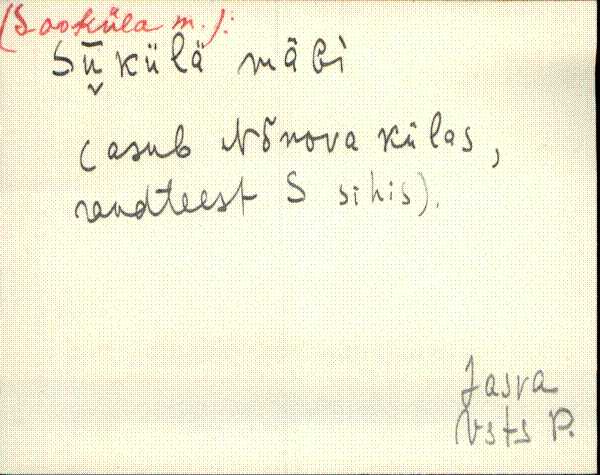 (Sooküla m.):
Sūkülä mäbi
(asub Nõnova külas,
raudteest S sihis).
Jasra
Vsts P.